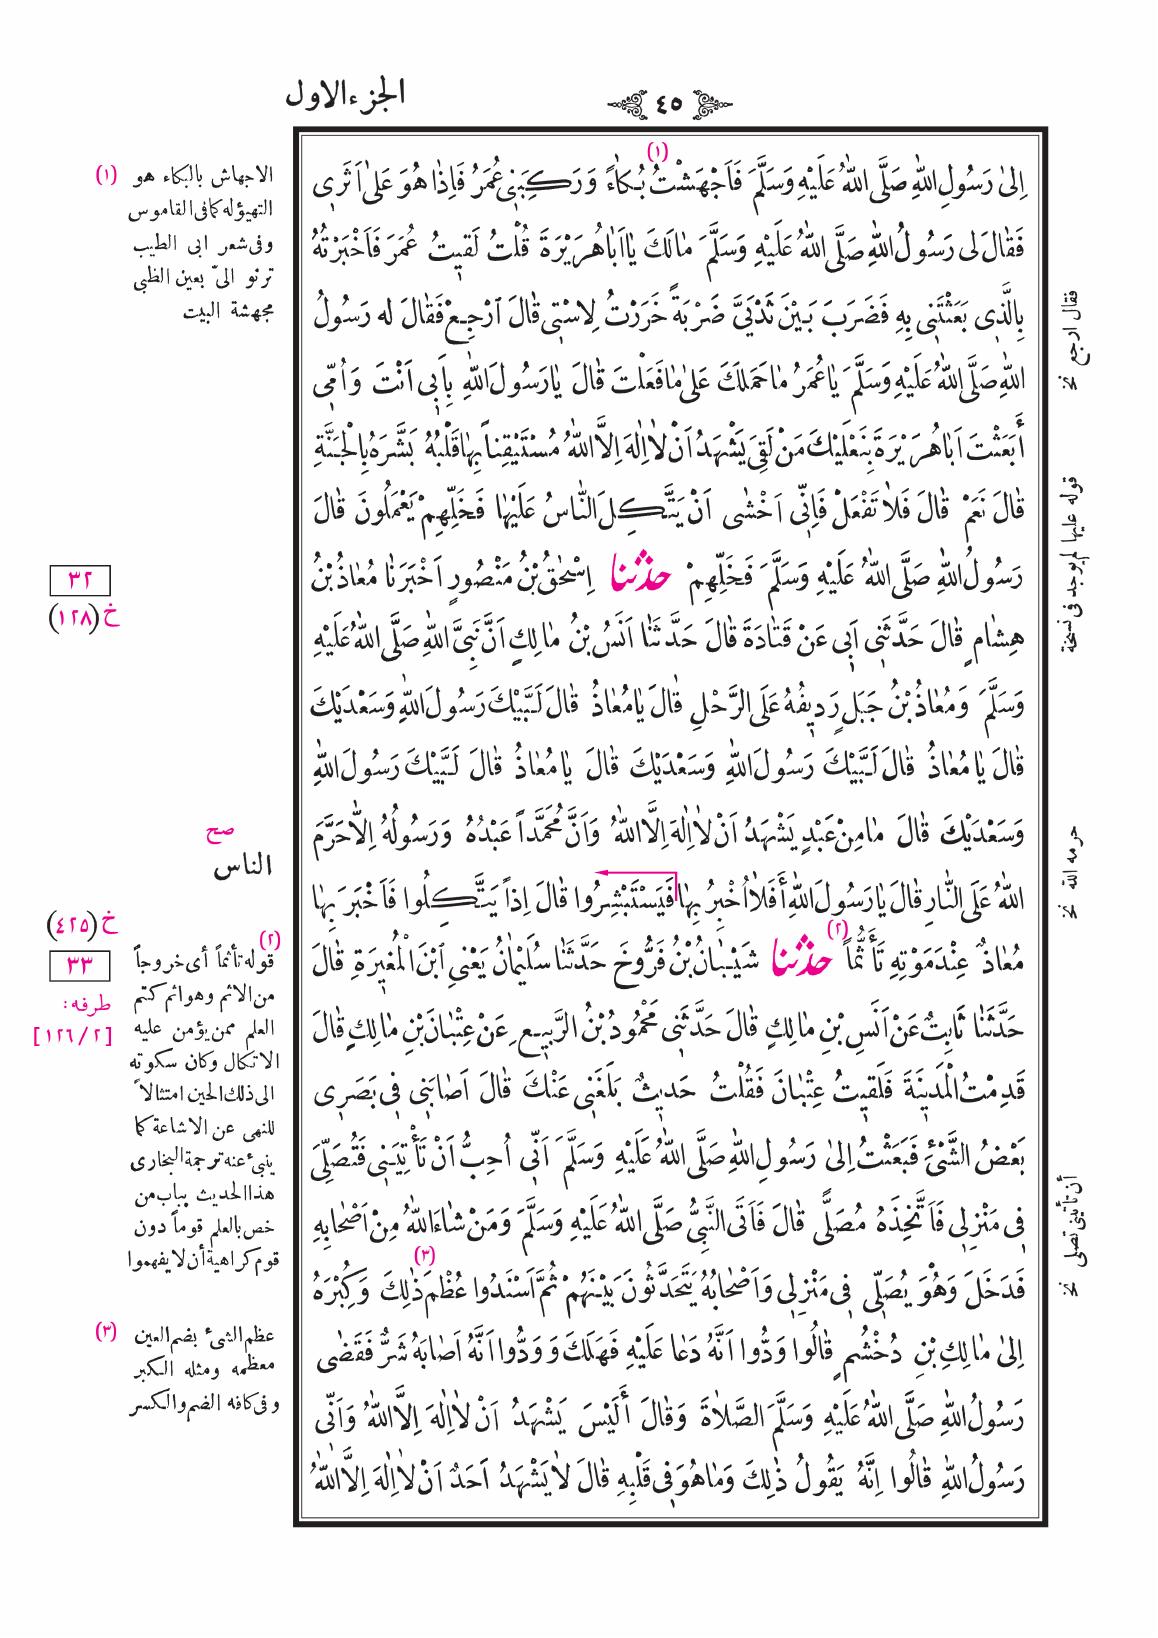 الجزء الاول
٤٥
اِلىٰ رَسُولِ اللّٰهِ صَلَّى اللّٰهُ عَلَيْهِ وَسَلَّمَ فَاَجْهَشْتُ (١) بُكاءً وَرَكِبَنِى عُمَرُ فَاِذٰا هُوَ عَلىٰ اَثَرِى
فَقٰالَ لى رَسُولُ اللّٰهِ صَلَّى اللّٰهُ عَلَيْهِ وَسَلَّمَ مٰالَكَ يٰا اَبٰا هُرَيْرَةَ قُلْتُ لَقيتُ عُمَرَ فَاَخْبَرْتُهُ
بِالَّذِى بَعَثْتَنِى بِهِ فَضَرَبَ بَيْنَ ثَدْيَىَّ ضَرْبَةً خَرَرْتُ لِاسْتِى قٰالَ اَرْجِعْ فَقٰالَ له رَسُولُ
اللّٰهِ صَلَّى اللّٰهُ عَلَيْهِ وَسَلَّمَ يٰا عُمَرُ مٰا حَمَلَكَ عَلىٰ مٰا فَعَلْتَ قٰالَ يٰا رَسُولَ اللّٰهِ بِاَبِى اَنْتَ وَاُمِّى
أَبَعَثْتَ اَبٰا هُرَيْرَةَ بِنَعْلَيْكَ مَنْ لَقِىَ يَشْهَدُ اَنْ لٰا اِلٰهَ اِلَّا اللّٰهُ مُسْتَيْقِناً بِهٰا قَلْبُهُ بَشَّرَهُ بِالْجَنَّةِ
قٰالَ نَعَمْ قٰالَ فَلاٰ تَفْعَلْ فَاِنّى اَخْشٰى اَنْ يَتَّكِلَ النّٰاسُ عَلَيْهٰا فَخَلِّهِمْ يَعْمَلُونَ قٰالَ
رَسُولُ اللّٰهِ صَلَّى اللّٰهُ عَلَيْهِ وَسَلَّمَ فَخَلِّهِمْ حدثنا اِسْحٰقُ بْنُ مَنْصُورٍ اَخْبَرَنٰا مُعٰاذُ بْنُ
هِشٰامٍ قٰالَ حَدَّثَنِى اَبِى عَنْ قَتٰادَةَ قٰالَ حَدَّثَنٰا اَنَسُ بْنُ مٰالِكٍ اَنَّ نَبِىَّ اللّٰهِ صَلَّى اللّٰهُ عَلَيْهِ
وَسَلَّمَ وَمُعٰاذُ بْنُ جَبَلٍ رَدِيفُهُ عَلَى الرَّحْلِ قٰالَ يٰا مُعٰاذُ قٰالَ لَبَّيْكَ رَسُولَ اللّٰهِ وَسَعْدَيْكَ
قٰالَ يٰا مُعٰاذُ قٰالَ لَبَّيْكَ رَسُولَ اللّٰهِ وَسَعْدَيْكَ قٰالَ يٰا مُعٰاذُ قٰالَ لَبَّيْكَ رَسُولَ اللّٰهِ
وَسَعْدَيْكَ قٰالَ مٰا مِنْ عَبْدٍ يَشْهَدُ اَنْ لاٰ اِلٰهَ اِلَّا اللّٰهُ وَاَنَّ مُحَمَّداً عَبْدُهُ وَرَسُولُهُ اِلّٰا حَرَّمَ
اللّٰهُ عَلَى النّٰارِ قٰالَ يٰا رَسُولَ اللّٰهِ أَفَلاٰ اُخْبِرُ بِهٰا فَيَسْتَبْشِرُوا قٰالَ اِذاً يَتَّكِلُوا فَاَخْبَرَ بِهٰا
مُعٰاذٌ عِنْدَ مَوْتِهِ تَأَثُّماً (٢) حدثنا شَيْبٰانُ بْنُ فَرُّوخَ حَدَّثَنٰا سُلَيْمٰانُ يَعْنِى اَبْنَ الْمُغيرَةِ قٰالَ
حَدَّثَنٰا ثَابِتٌ عَنْ اَنَسِ بْنِ مٰالِكٍ قٰالَ حَدَّثَنِى مَحْمُودُ بْنُ الرَّبيعِ عَنْ عِتْبٰانَ بْنِ مٰالِكٍ قٰالَ
قَدِمْتُ الْمَدِينَةَ فَلَقيتُ عِتْبٰانَ فَقُلْتُ حَديثٌ بَلَغَنِى عَنْكَ قٰالَ اَصٰابَنِى فِى بَصَرِى
بَعْضُ الشَّىْءِ فَبَعَثْتُ اِلىٰ رَسُولِ اللّٰهِ صَلَّى اللّٰهُ عَلَيْهِ وَسَلَّمَ اَنِّى اُحِبُّ اَنْ تَأْتِيَنِى فَتُصَلِّىَ
فِى مَنْزِلِى فَاَتَّخِذَهُ مُصَلًّى قٰالَ فَاَتَى النَّبِىُّ صَلَّى اللّٰهُ عَلَيْهِ وَسَلَّمَ وَمَنْ شٰاءَ اللّٰهُ مِنْ اَصْحٰابِهِ
فَدَخَلَ وَهُوَ يُصَلِّى فِى مَنْزِلِى وَاَصْحٰابُهُ يَتَحَدَّثُونَ بَيْنَهُمْ ثُمَّ اَسْنَدُوا عُظْمَ (٣) ذٰلِكَ وَكِبْرَهُ
اِلىٰ مٰالِكِ بْنِ دُخْشُمٍ قٰالُوا وَدُّوا اَنَّهُ دَعٰا عَلَيْهِ فَهَلَكَ وَوَدُّوا اَنَّهُ اَصٰابَهُ شَرٌّ فَقَضٰى
رَسُولُ اللّٰهِ صَلَّى اللّٰهُ عَلَيْهِ وَسَلَّمَ الصَّلاٰةَ وَقٰالَ أَلَيْسَ يَشْهَدُ اَنْ لاٰ اِلٰهَ اِلَّا اللّٰهُ وَاَنِّى
رَسُولُ اللّٰهِ قٰالُوا اِنَّهُ يَقُولُ ذٰلِكَ وَمٰا هُوَ فِى قَلْبِهِ قٰالَ لاٰ يَشْهَدُ اَحَدٌ اَنْ لاٰ اِلٰهَ اِلَّا اللّٰهُ
فقال ارجع نخ
قوله عليها لم يوجد فى نسخة
حرمه الله نخ
أن تأتينى تصلى نخ
(١) الاجهاش بالبكاء هو
التهيؤله كما فى القاموس
وفى شعر ابى الطيب
ترنو الىّ بعين الظبى
مجهشة البيت
٣٢
خ (١٢٨)
صح
الناس
خ (٤٢٥)
٣٣
طرفه:
[١٢٦/٢]
(٢) قوله تأثماً أى خروجاً
من الاثم وهو اثم كتم
العلم ممن يؤمن عليه
الاتكال وكان سكوته
الى ذلك الحين امتثالاً
للنهى عن الاشاعة كما
ينبئ عنه ترجمة البخارى
هذا الحديث بباب من
خص بالعلم قوماً دون
قوم كراهية أن لا يفهموا
(٣) عظم الشئ بضم العين
معظمه ومثله الكبر
وفى كافه الضم والكسر